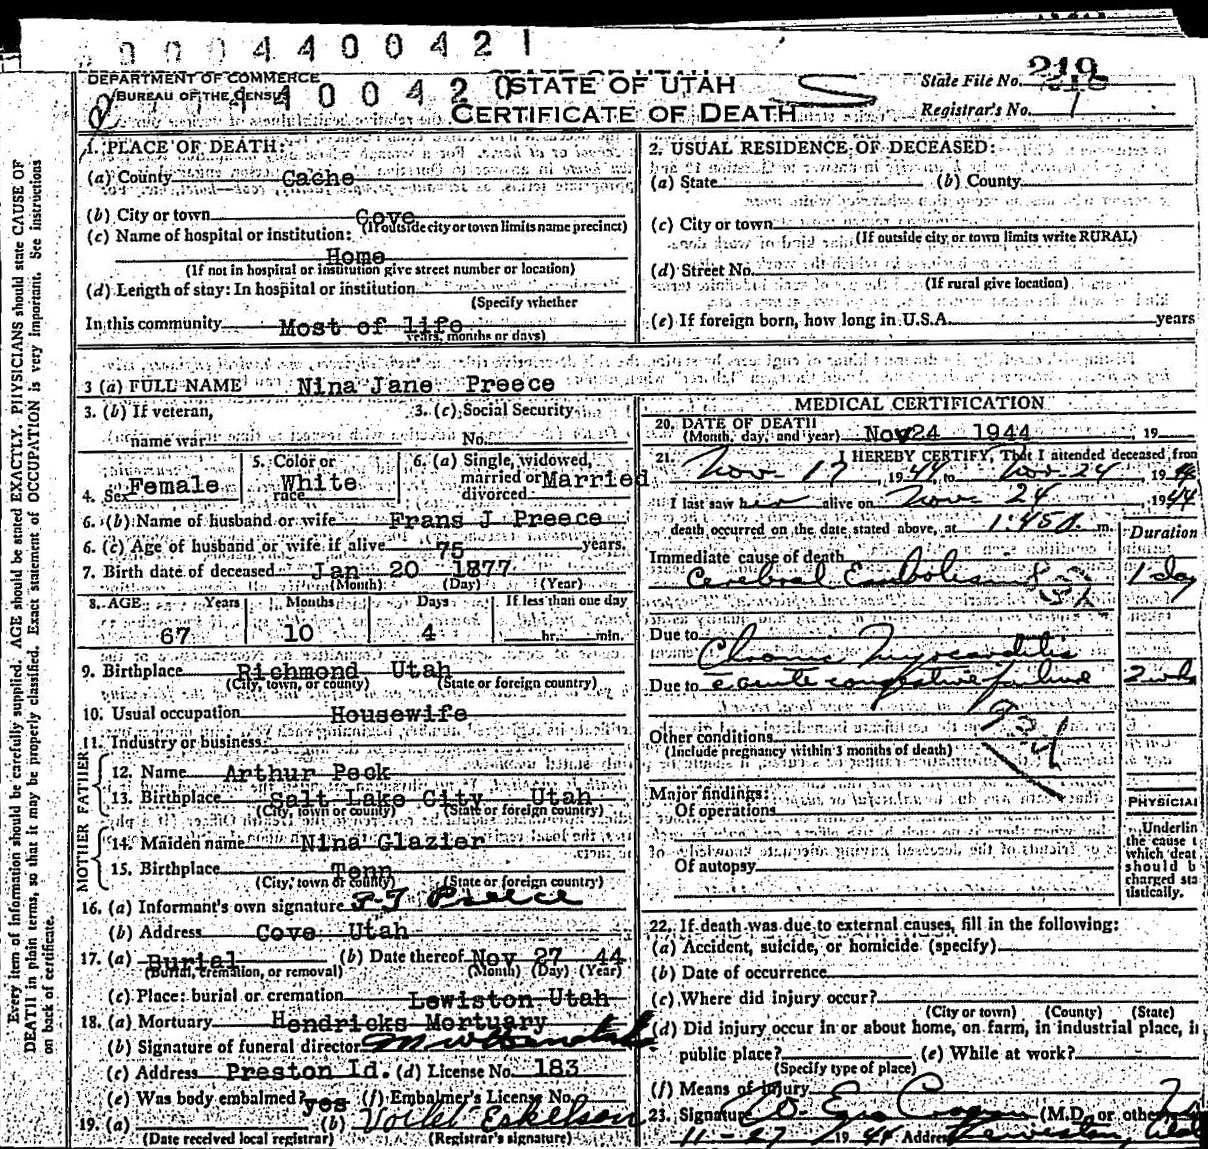 0 0 0 4 4 0 0 4 2 1
DEPARTMENT OF COMMERCE
BUREAU OF THE CENSUS
4 4 0 0 4 2 0
STATE OF UTAH
CERTIFICATE OF DEATH
State File No. 219
Registrar's No. 1
Every item of information should be carefully supplied. AGE should be stated EXACTLY. PHYSICIANS should state CAUSE OF
DEATH in plain terms, so that it may be properly classified. Exact statement of OCCUPATION is very important. See instructions
on back of certificate.
1. PLACE OF DEATH:
(a) County Cache
(b) City or town Cove
(If outside city or town limits name precinct)
(c) Name of hospital or institution:
Home
(If not in hospital or institution give street number or location)
(d) Length of stay: In hospital or institution
(Specify whether
In this community Most of life
years, months or days)
2. USUAL RESIDENCE OF DECEASED:
(a) State (b) County
(c) City or town
(If outside city or town limits write RURAL)
(d) Street No.
(If rural give location)
(e) If foreign born, how long in U.S.A. years
3 (a) FULL NAME Nina Jane Preece
3. (b) If veteran,
name war
3. (c) Social Security
No.
4. Sex Female
5. Color or
race White
6. (a) Single, widowed,
married or
divorced Married
6. (b) Name of husband or wife Frans J Preece
6. (c) Age of husband or wife if alive 75 years.
7. Birth date of deceased Jan 20 1877
(Month) (Day) (Year)
8. AGE Years Months Days If less than one day
67 10 4 hr. min.
9. Birthplace Richmond Utah
(City, town, or county) (State or foreign country)
10. Usual occupation Housewife
11. Industry or business
FATHER
12. Name Arthur Peck
13. Birthplace Salt Lake City Utah
(City, town or county) (State or foreign country)
MOTHER
14. Maiden name Nina Glazier
15. Birthplace Tenn
(City, town or county) (State or foreign country)
16. (a) Informant's own signature F J Preece
(b) Address Cove Utah
17. (a) Burial (b) Date thereof Nov 27 44
(Burial, cremation, or removal) (Month) (Day) (Year)
(c) Place: burial or cremation Lewiston Utah
18. (a) Mortuary Hendricks Mortuary
(b) Signature of funeral director
(c) Address Preston Id. (d) License No. 183
(e) Was body embalmed? yes (f) Embalmer's License No.
19. (a) (b) Voilet Eskelson
(Date received local registrar) (Registrar's signature)
MEDICAL CERTIFICATION
20. DATE OF DEATH
(Month, day, and year) Nov 24 1944, 19
21. I HEREBY CERTIFY, That I attended deceased from
Nov - 17, 1944, to Nov - 24, 1944
I last saw her alive on Nov - 24, 1944
death occurred on the date stated above, at 1:45 A. m.
Duration
Immediate cause of death
Cerebral Embolism 1 day
Due to Chronic Myocarditis
Due to & acute congestive failure 2 wks
Other conditions
(Include pregnancy within 3 months of death)
Major findings:
Of operations
Of autopsy
PHYSICIAN
Underlin
the cause t
which deat
should b
charged sta
tistically.
22. If death was due to external causes, fill in the following:
(a) Accident, suicide, or homicide (specify)
(b) Date of occurrence
(c) Where did injury occur?
(City or town) (County) (State)
(d) Did injury occur in or about home, on farm, in industrial place, in
public place? (e) While at work?
(Specify type of place)
(f) Means of injury
23. Signature (M.D. or other)
11-27 1944 Address Lewiston, Utah